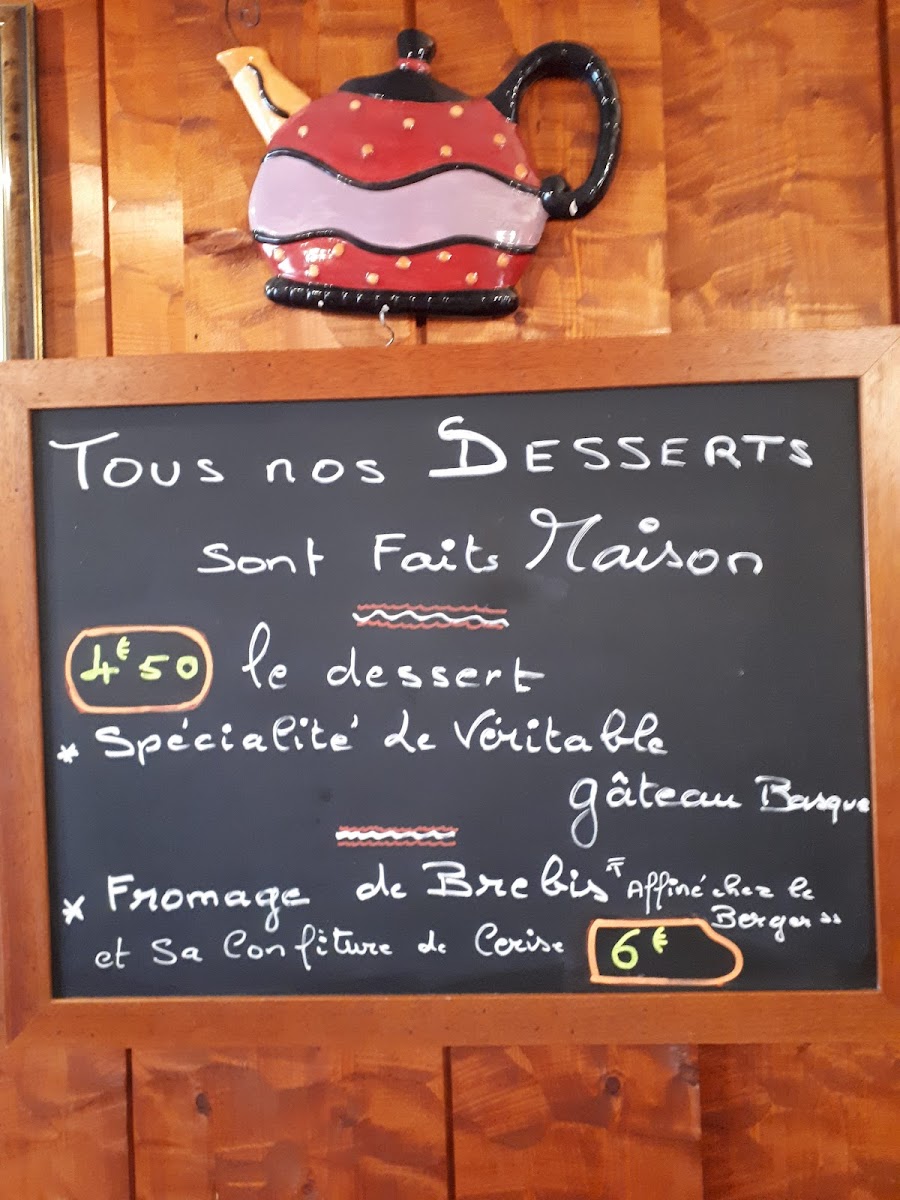 Tous nos DESSERTS
sont Faits Maison
4€50 le dessert
* Spécialité de Véritable
gâteau Basque
* Fromage de Brebis "Affiné chez le
Berger"
et Sa Confiture de Cerise 6€